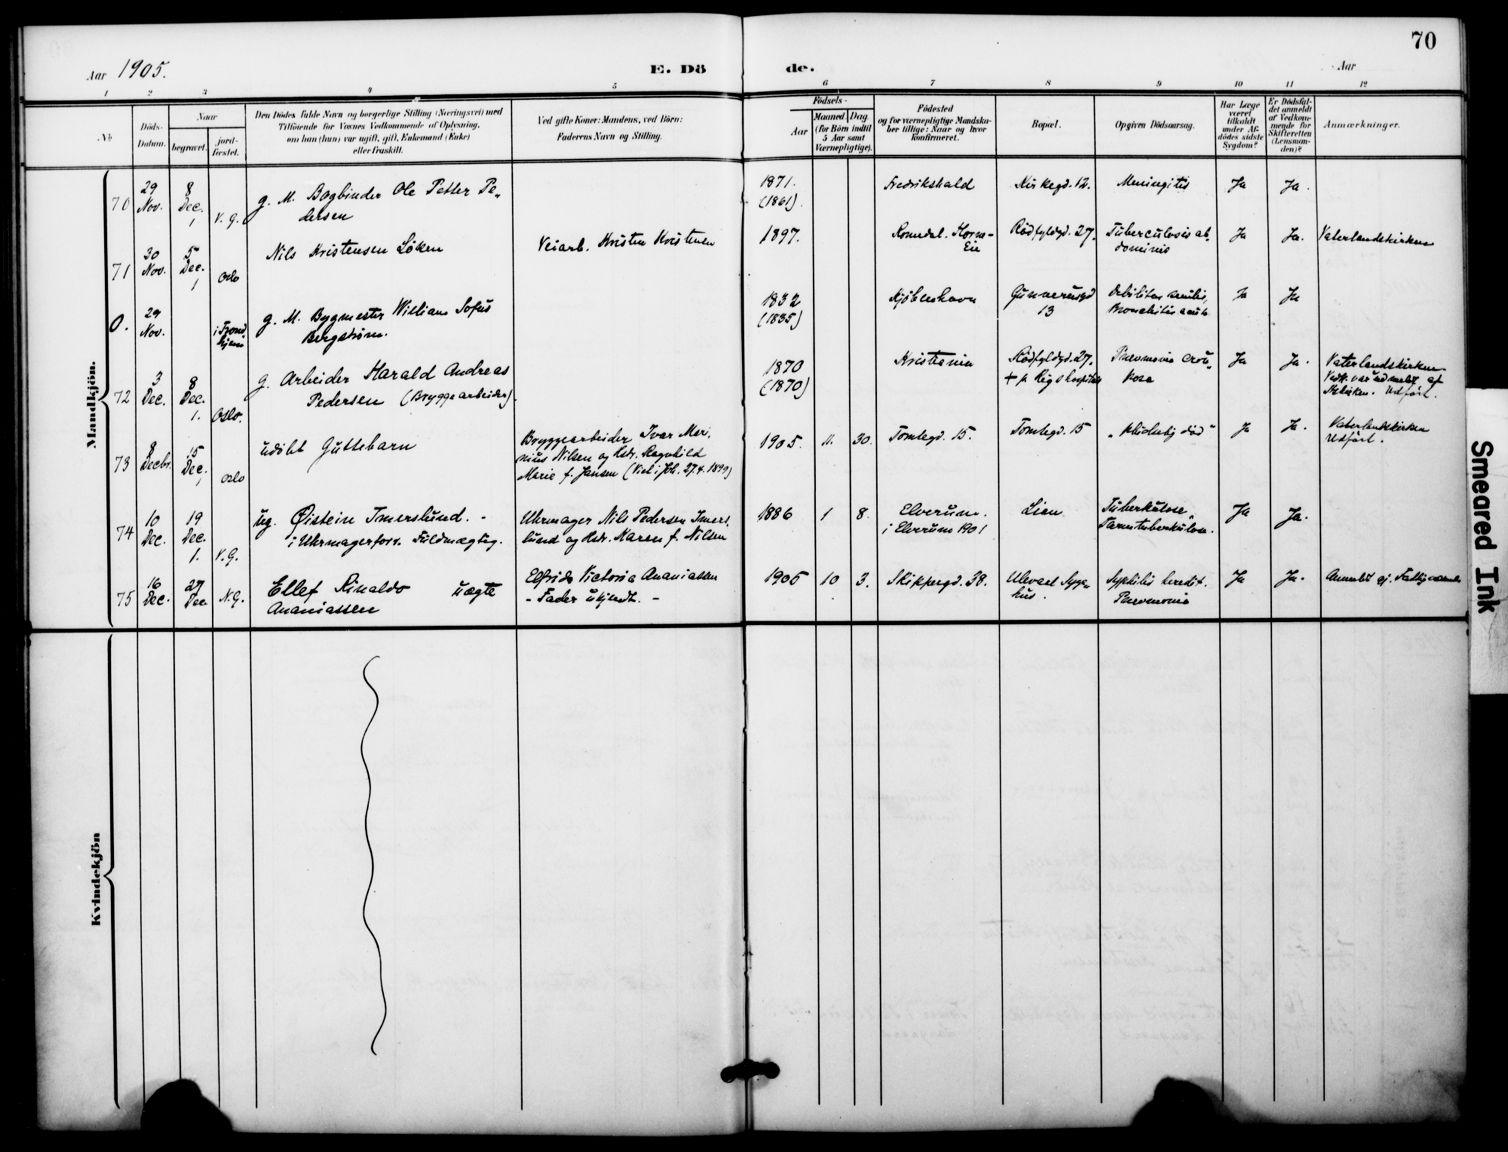 70
Aar 1905.
E. Dö de.
Aar
1 2 3 4 5 6 7 8 9 10 11 12
No.
Döds-
Datum.
Naar
begravet.
jord-
fæstet.
Den Dödes fulde Navn og borgerlige Stilling (Næringsvei) med
Tilföiende for Voxnes Vedkommende af Oplysning,
om han (hun) var ugift, gift, Enkemand (Enke)
eller fraskilt.
Ved gifte Koner: Mandens, ved Börn:
Faderens Navn og Stilling.
Födsels-
Aar
Maaned Dag
(for Börn indtil
5 Aar samt
Værnepligtige).
Födested
og for værnepligtige Mandska-
ber tillige: Naar og hvor
konfirmeret.
Bopæl.
Opgiven Dödsaarsag.
Har Læge
været
tilkaldt
under Af-
dödes sidste
Sygdom?
Er Dödsfal-
det anmeldt
af Vedkom-
mende for
Skifteretten
(Lensman-
den)?
Anmærkninger.
Mandkjön.
70 29 Nov. 8 Dec. 1 V. G. g. M. Bogbinder Ole Petter Pe-
dersen 1871. (1861). Fredrikshald Kirkegd. 12. Meningitis Ja Ja.
71 30 Nov. 5 Dec. 1 Oslo Nils Kristensen Løken Veiarb. Kristen Kristensen 1897. Romedal. Rødfyldgd. 27. Tuberculosis ab-
dominis Ja Ja. Vaterlandskirken
0. 29 Nov. i Trond-
hjem g. M. Bygmester William Sofus
Bergstrøm. 1832 (1835) Kjøbenhavn Gunnerusgd
13 Debilitas senilis,
Bronchitis acut. Ja Ja
72 3 Dec. 8 Dec. 1. Oslo. g. Arbeider Harald Andreas
Pedersen (Bryggearbeider). 1870 (1870) Kristiania Rødfyldgd. 27.
+ p. Rigshospitalet Pneumonia crou-
posa Ja Ja. Vaterlandskirken
Udført.
73 8 Decbr. 15 Dec. 1 Oslo udøbt Guttebarn Bryggearbeider Ivar Mari-
nius Nilsen og Hstr. Ragnhild
Marie f. Jansen 1905 11. 30. Tomtegd. 15. Tomtegd. 15 „Pludselig død" Ja Ja. Vaterlandskirken
Udført.
74 10 Dec. 19 Dec. 1. V. G. ug. Øistein Imerslund. -
i Uhrmagerforr. Fuldmægtig. Uhrmager Nils Pedersen Imers-
lund og Hstr. Karen f. Nilsen 1886 1 8. Elverum.
i Elverum 1901 Lien Tuberkulose,
Tarmtuberkulose. Ja Ja.
75 16 Dec. 27 Dec N. G. Ellef Rinaldo uægte
Ananiassen Elfrida Victoria Ananiassen
- Fader ukjendt. - 1905 10 3. Skippergd. 38. Ulevaal Syge-
hus. Syphilis heredit.
Pneumonia Ja Ja.
Kvindekjön
Smeared Ink